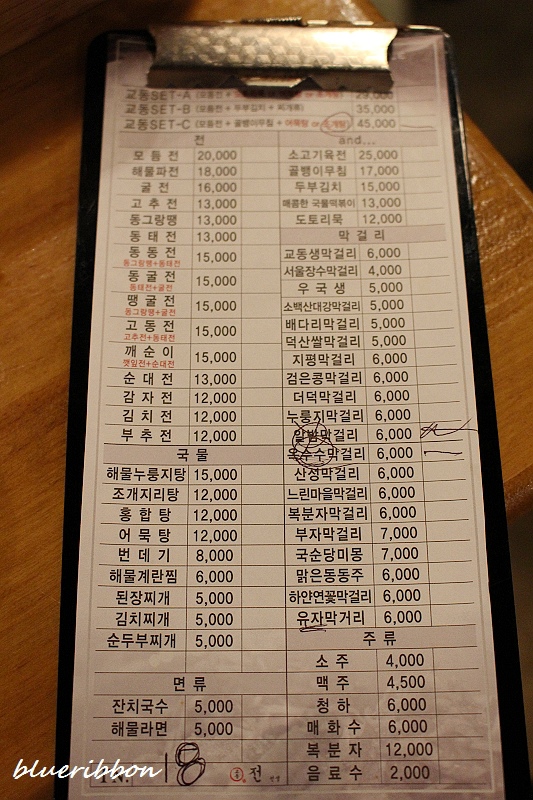 교동SET-A (모듬전 + 29,000
교동SET-B (모듬전 + 두부김치 + 찌개류) 35,000
교동SET-C (모듬전 + 골뱅이무침 + 어묵탕 or 조개탕) 45,000
전
모듬전 20,000
해물파전 18,000
굴전 16,000
고추전 13,000
동그랑땡 13,000
동태전 13,000
동동전 15,000
동그랑땡+동태전
동굴전 15,000
동태전+굴전
땡굴전 15,000
동그랑땡+굴전
고동전 15,000
고추전+동태전
깨순이 15,000
깻잎전+순대전
순대전 13,000
감자전 12,000
김치전 12,000
부추전 12,000
국물
해물누룽지탕 15,000
조개지리탕 12,000
홍합탕 12,000
어묵탕 12,000
번데기 8,000
해물계란찜 6,000
된장찌개 5,000
김치찌개 5,000
순두부찌개 5,000
면류
잔치국수 5,000
해물라면 5,000
and...
소고기육전 25,000
골뱅이무침 17,000
두부김치 15,000
매콤한 국물떡볶이 13,000
도토리묵 12,000
막걸리
교동생막걸리 6,000
서울장수막걸리 4,000
우국생 5,000
소백산대강막걸리 5,000
배다리막걸리 5,000
덕산쌀막걸리 5,000
지평막걸리 6,000
검은콩막걸리 6,000
더덕막걸리 6,000
누룽지막걸리 6,000
알밤막걸리 6,000
옥수수막걸리 6,000
산성막걸리 6,000
느린마을막걸리 6,000
복분자막걸리 6,000
부자막걸리 7,000
국순당미몽 7,000
맑은동동주 6,000
하얀연꽃막걸리 6,000
유자막거리 6,000
주류
소주 4,000
맥주 4,500
청하 6,000
매화수 6,000
복분자 12,000
음료수 2,000
18
전
blueribbon